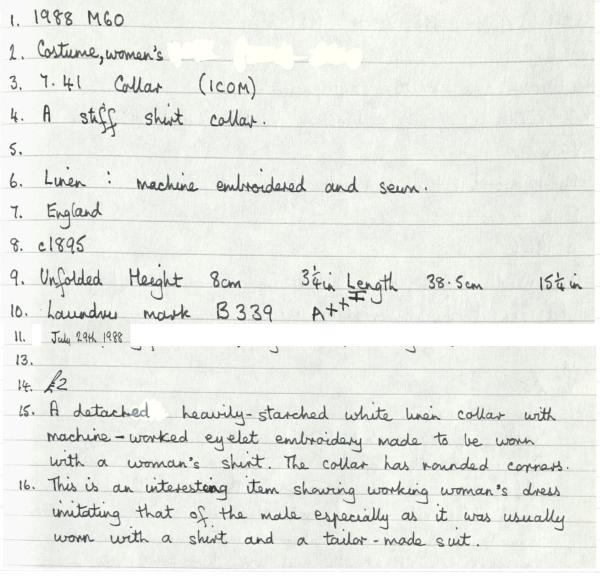 1. 1988 M60
2. Costume, women's
3. 7.41 Collar (ICOM)
4. A stiff shirt collar.
5.
6. Linen : machine embroidered and sewn.
7. England
8. c1895
9. Unfolded Height 8cm 3¼in Length 38.5cm 15¼in
10. Laundry mark B339 A++
11. July 29th 1988
13.
14. £2
15. A detached heavily-starched white linen collar with
machine-worked eyelet embroidery made to be worn
with a woman's shirt. The collar has rounded corners.
16. This is an interesting item showing working woman's dress
imitating that of the male especially as it was usually
worn with a shirt and a tailor-made suit.